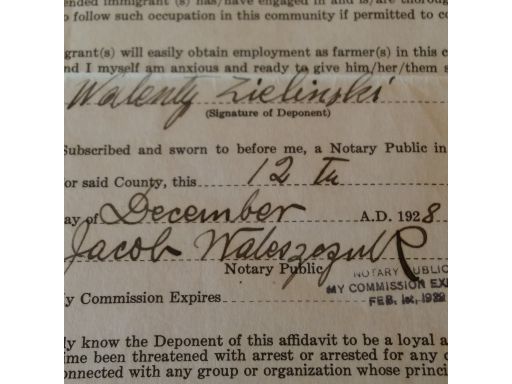 ended immigrant (s) has/have engaged in and is/are thorou
o follow such occupation in this community if permitted to co
grant(s) will easily obtain employment as farmer(s) in this c
nd I myself am anxious and ready to give him/her/them s
Walenty Zielinski
(Signature of Deponent)
Subscribed and sworn to before me, a Notary Public in
or said County, this 12 Th
ay of December A.D. 1928
Jacob Waleszczuk
Notary Public
NOTARY PUBLIC
MY COMMISSION EX
y Commission Expires
FEB.
ly know the Deponent of this affidavit to be a loyal a
ime been threatened with arrest or arrested for any c
onnected with any group or organization whose princi